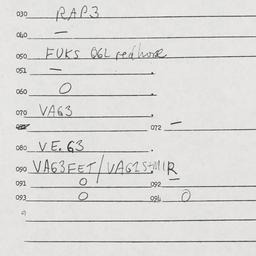 030 RAP3
040 —
050 FUKS Q6L red hore
051 —
060 O
070 VA63
072 —
080 VE.63
090 VA63FET/VA62S+M1R
091 O 092 —
093 O 094 O